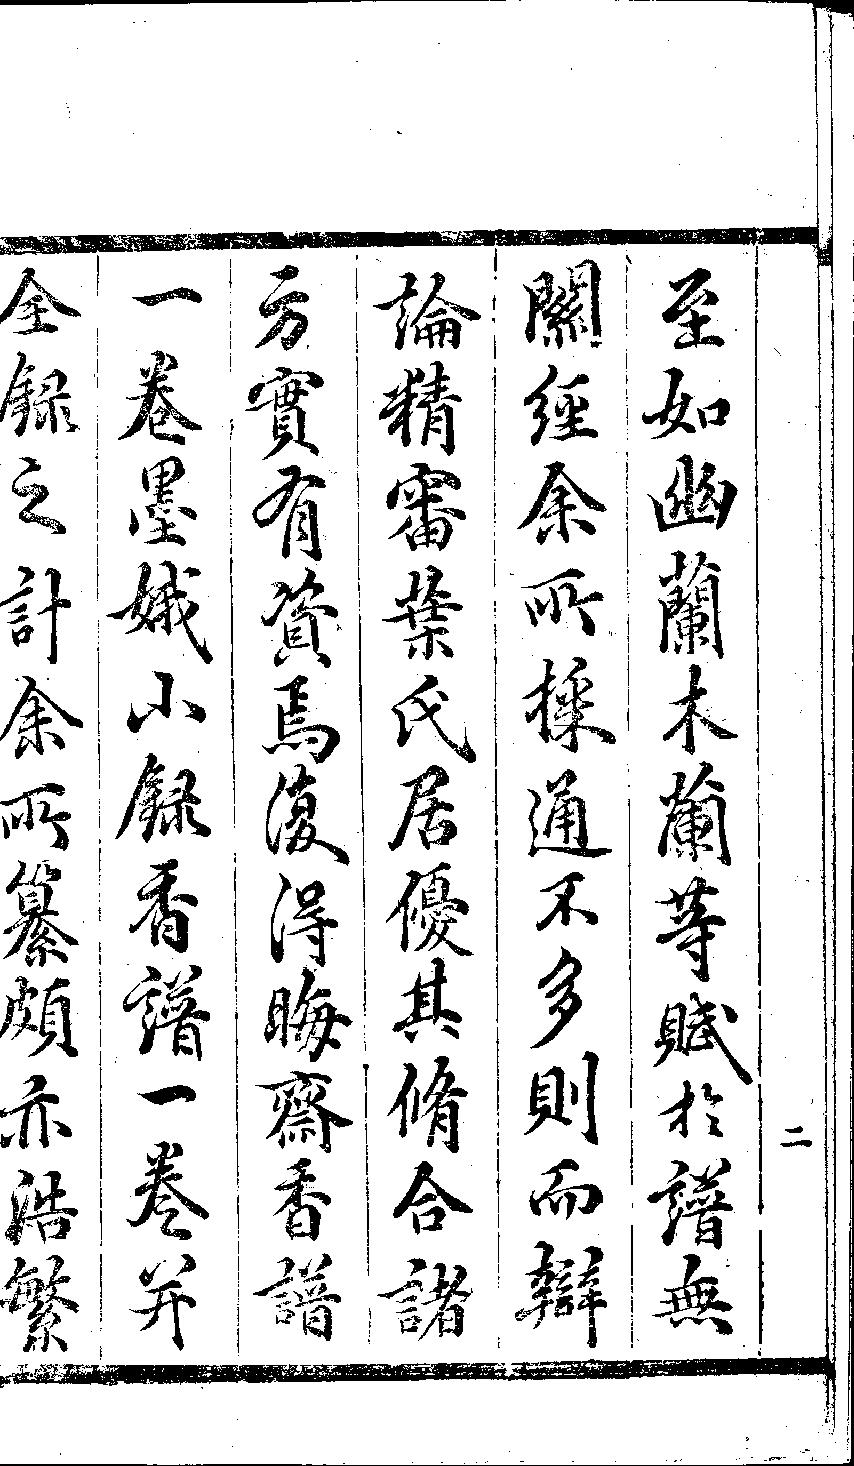 至如幽蘭木蘭等賦於譜無
關經余所採通不多則而辯
論精審葉氏居優其脩合諸
方實有資焉復得晦齋香譜
一卷墨娥小録香譜一卷并
全録之計余所纂頗亦浩繁
二